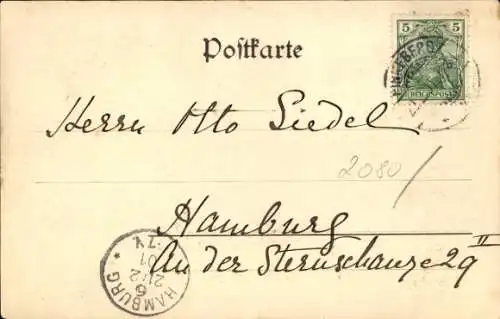 5 5
Postkarte
REICHSPOST
Herrn Otto Siedel
2080
Hamburg
An der Sternschanze 29 II
HAMBURG
6
21/2
01
7-V.